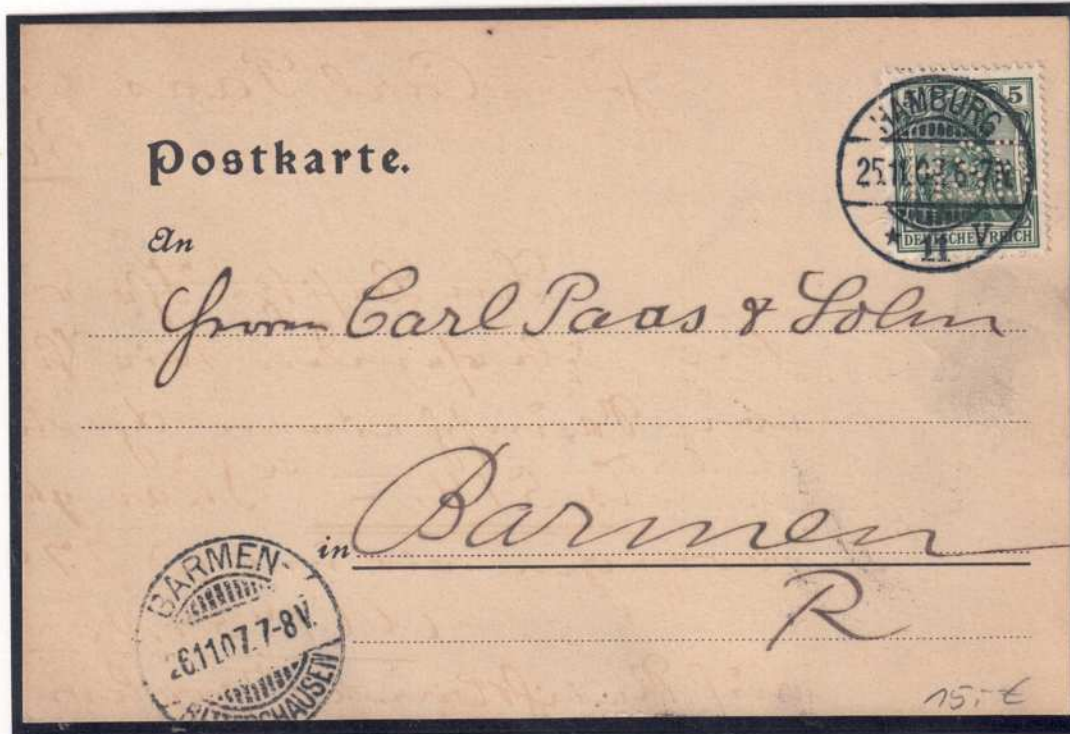 5
HAMBURG
25.11.07.6-7N.
* 11 V
DEUTSCHES REICH
Postkarte.
An
Herren Carl Paas & Sohn
in Barmen
R
BARMEN-
26.11.07.7-8V.
RITTERSHAUSEN
15,- €